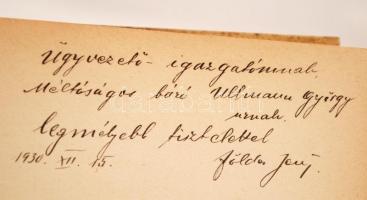 Ügyvezető-igazgatómnak,
Méltóságos báró Ullmann György
úrnak.
legmélyebb tisztelettel
1930. XII. 15. Földes Jenő